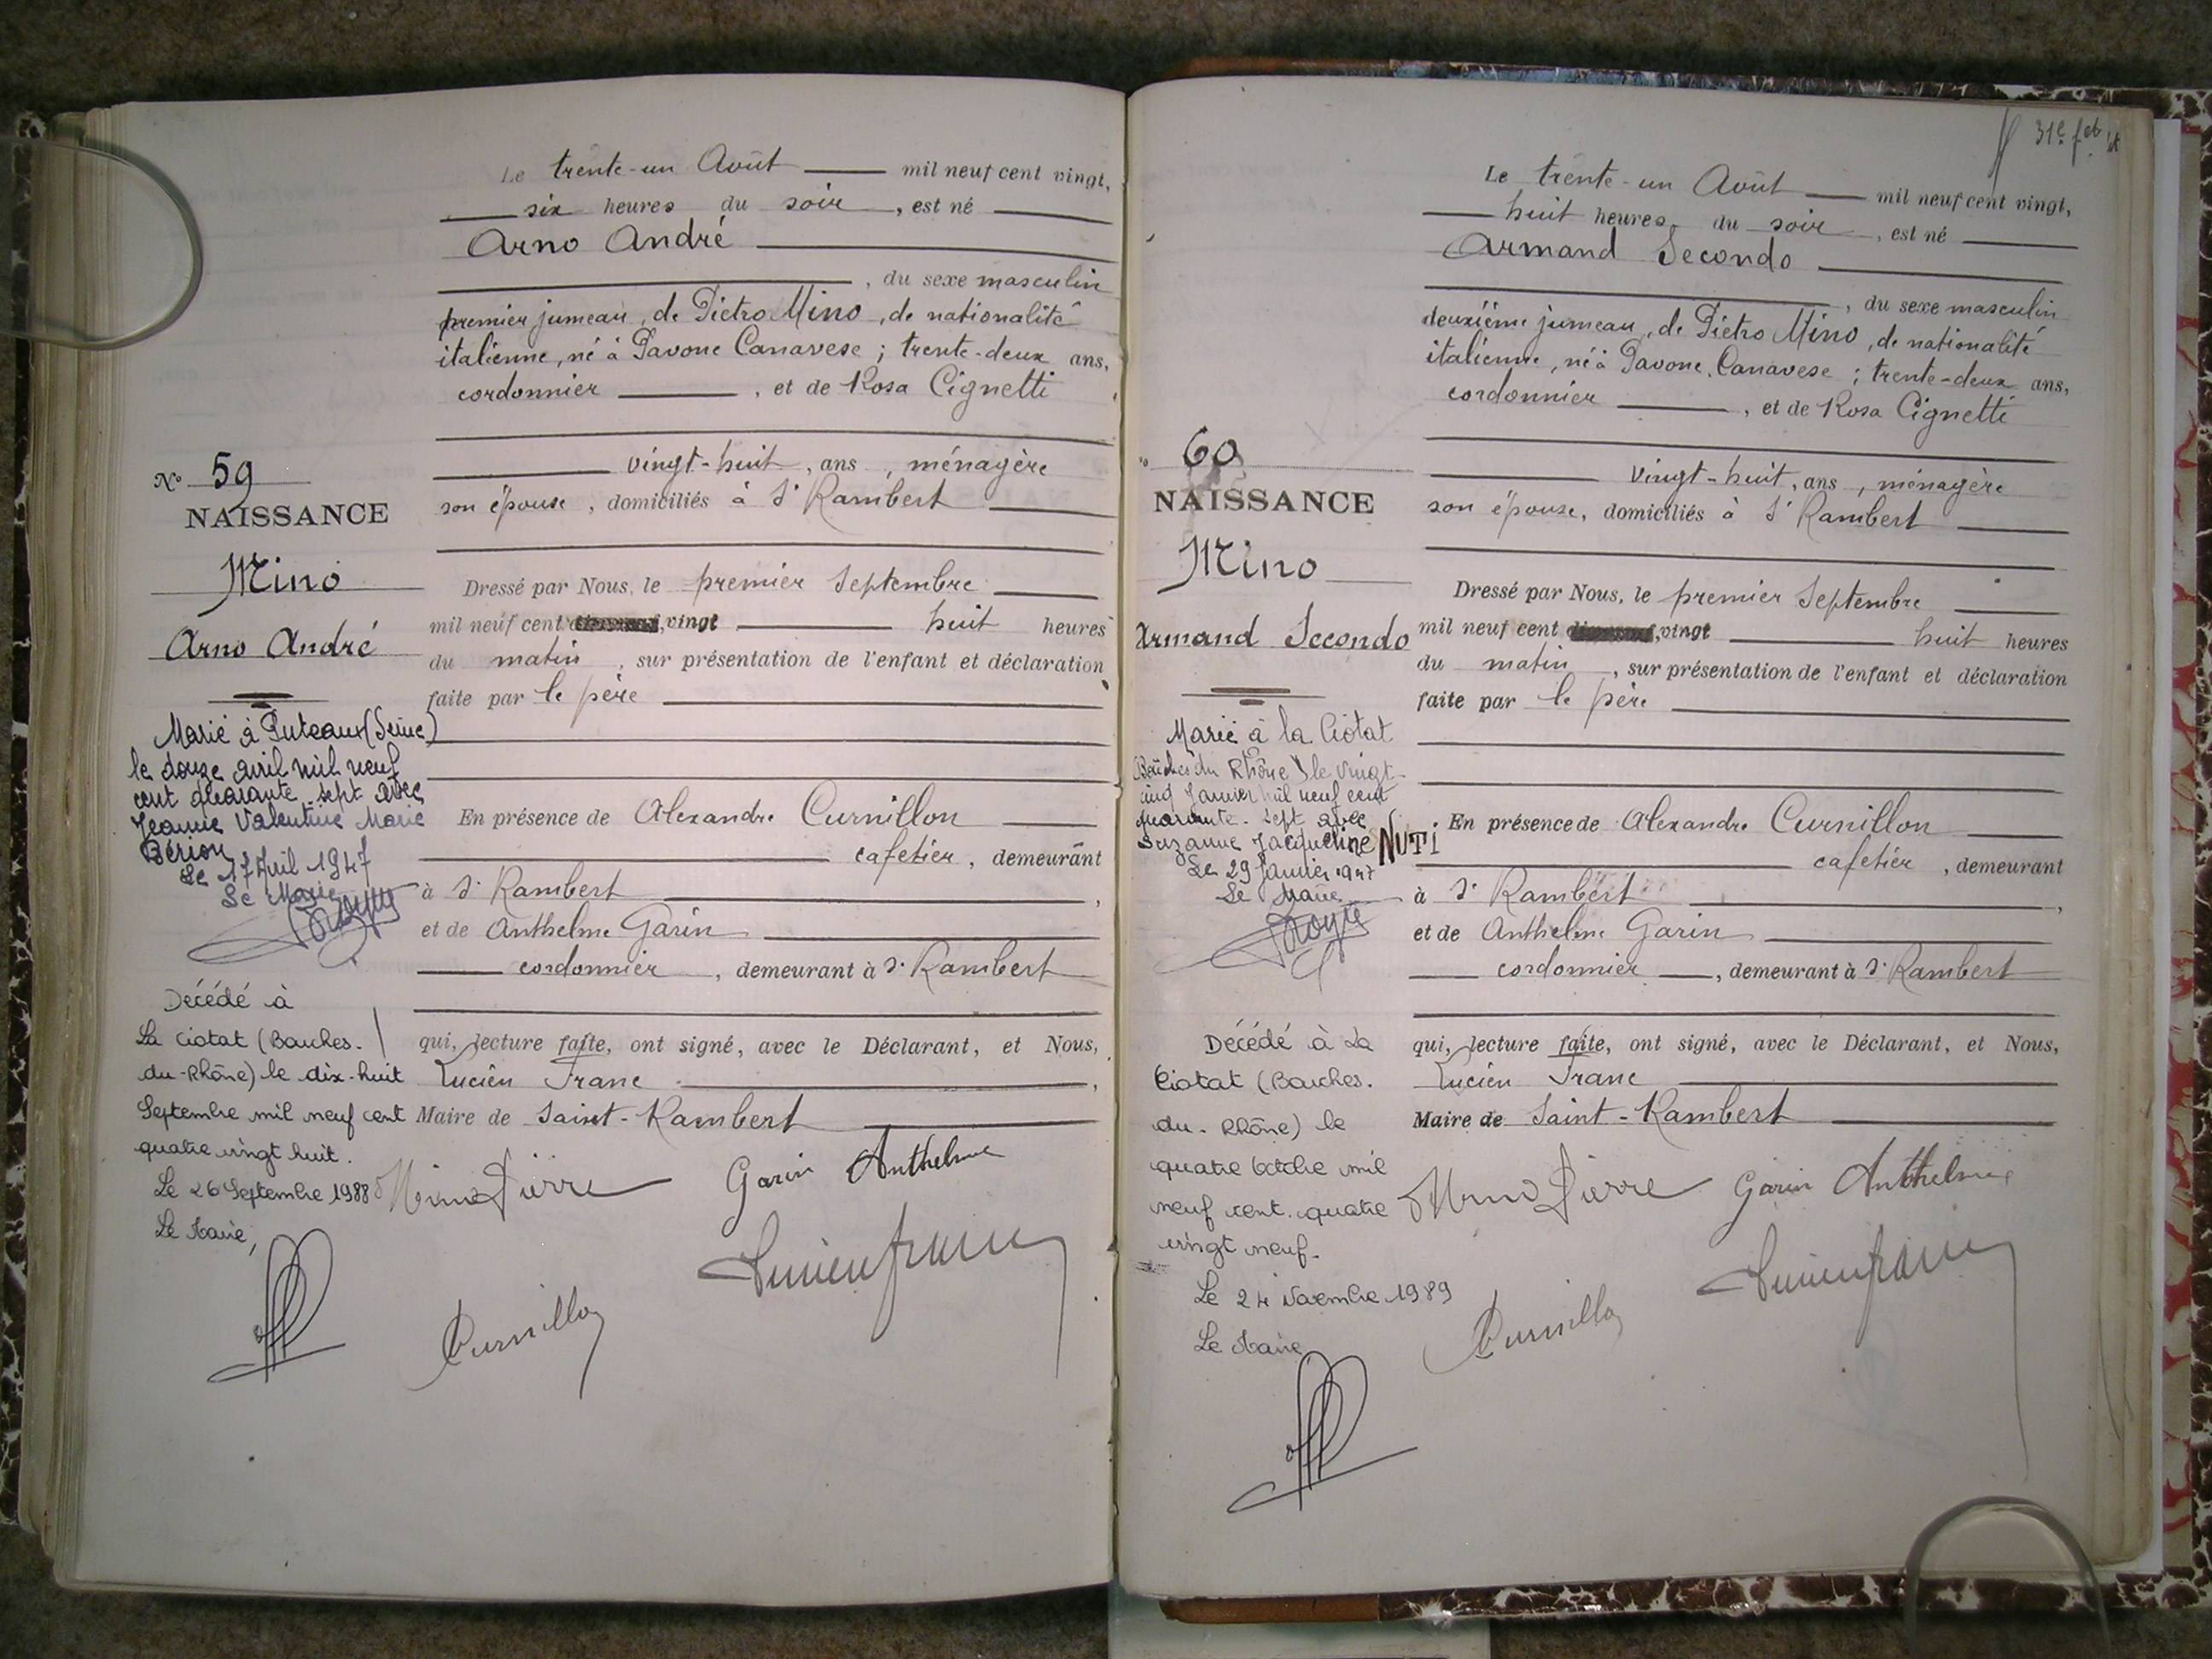 Le trente-un Août mil neuf cent vingt,
six heures du soir, est né
Arno André
, du sexe masculin
premier jumeau, de Pietro Mino, de nationalité
italienne, né à Pavone Canavese ; trente-deux ans,
cordonnier, et de Rosa Cignetti
vingt-huit, ans, ménagère
son épouse, domiciliés à St Rambert
Dressé par Nous, le premier Septembre
mil neuf cent vingt huit heures
du matin, sur présentation de l'enfant et déclaration
faite par le père
En présence de Alexandre Curnillon
cafetier, demeurant
à St Rambert,
et de Anthelme Garin
cordonnier, demeurant à St Rambert
qui, lecture faite, ont signé, avec le Déclarant, et Nous,
Lucien Franc,
Maire de Saint-Rambert
Mino Pierre Garin Anthelme
Lucien franc
Curnillon
No 59
NAISSANCE
Mino
Arno André
Marié à Puteaux (Seine)
le douze avril mil neuf
cent quarante-sept avec
Jeanne Valentine Marie
Bérion
Le 17 Avril 1947
Le Maire
Décédé à
La Ciotat (Bouches-
du-Rhône) le dix-huit
Septembre mil neuf cent
quatre vingt huit.
Le 26 Septembre 1988
Le Maire,
31e fet
Le trente-un Août mil neuf cent vingt,
huit heures du soir, est né
Armand Secondo
, du sexe masculin
deuxième jumeau, de Pietro Mino, de nationalité
italienne, né à Pavone Canavese ; trente-deux ans,
cordonnier, et de Rosa Cignetti
vingt-huit, ans, ménagère
son épouse, domiciliés à St Rambert
Dressé par Nous, le premier Septembre
mil neuf cent vingt huit heures
du matin, sur présentation de l'enfant et déclaration
faite par le père
En présence de Alexandre Curnillon
cafetier, demeurant
à St Rambert,
et de Anthelme Garin
cordonnier, demeurant à St Rambert
qui, lecture faite, ont signé, avec le Déclarant, et Nous,
Lucien Franc
Maire de Saint-Rambert
Mino Pierre Garin Anthelme
Lucien franc
Curnillon
No 60
NAISSANCE
Mino
Armand Secondo
Marié à la Ciotat
Bouches du Rhône) le vingt-
cinq Janvier mil neuf cent
quarante-sept avec
Suzanne Jacqueline NUTI
Le 29 Janvier 1947
Le Maire
Décédé à La
Ciotat (Bouches-
du-Rhône) le
quatre Octobre mil
neuf cent quatre
vingt neuf.
Le 24 Novembre 1989
Le Maire